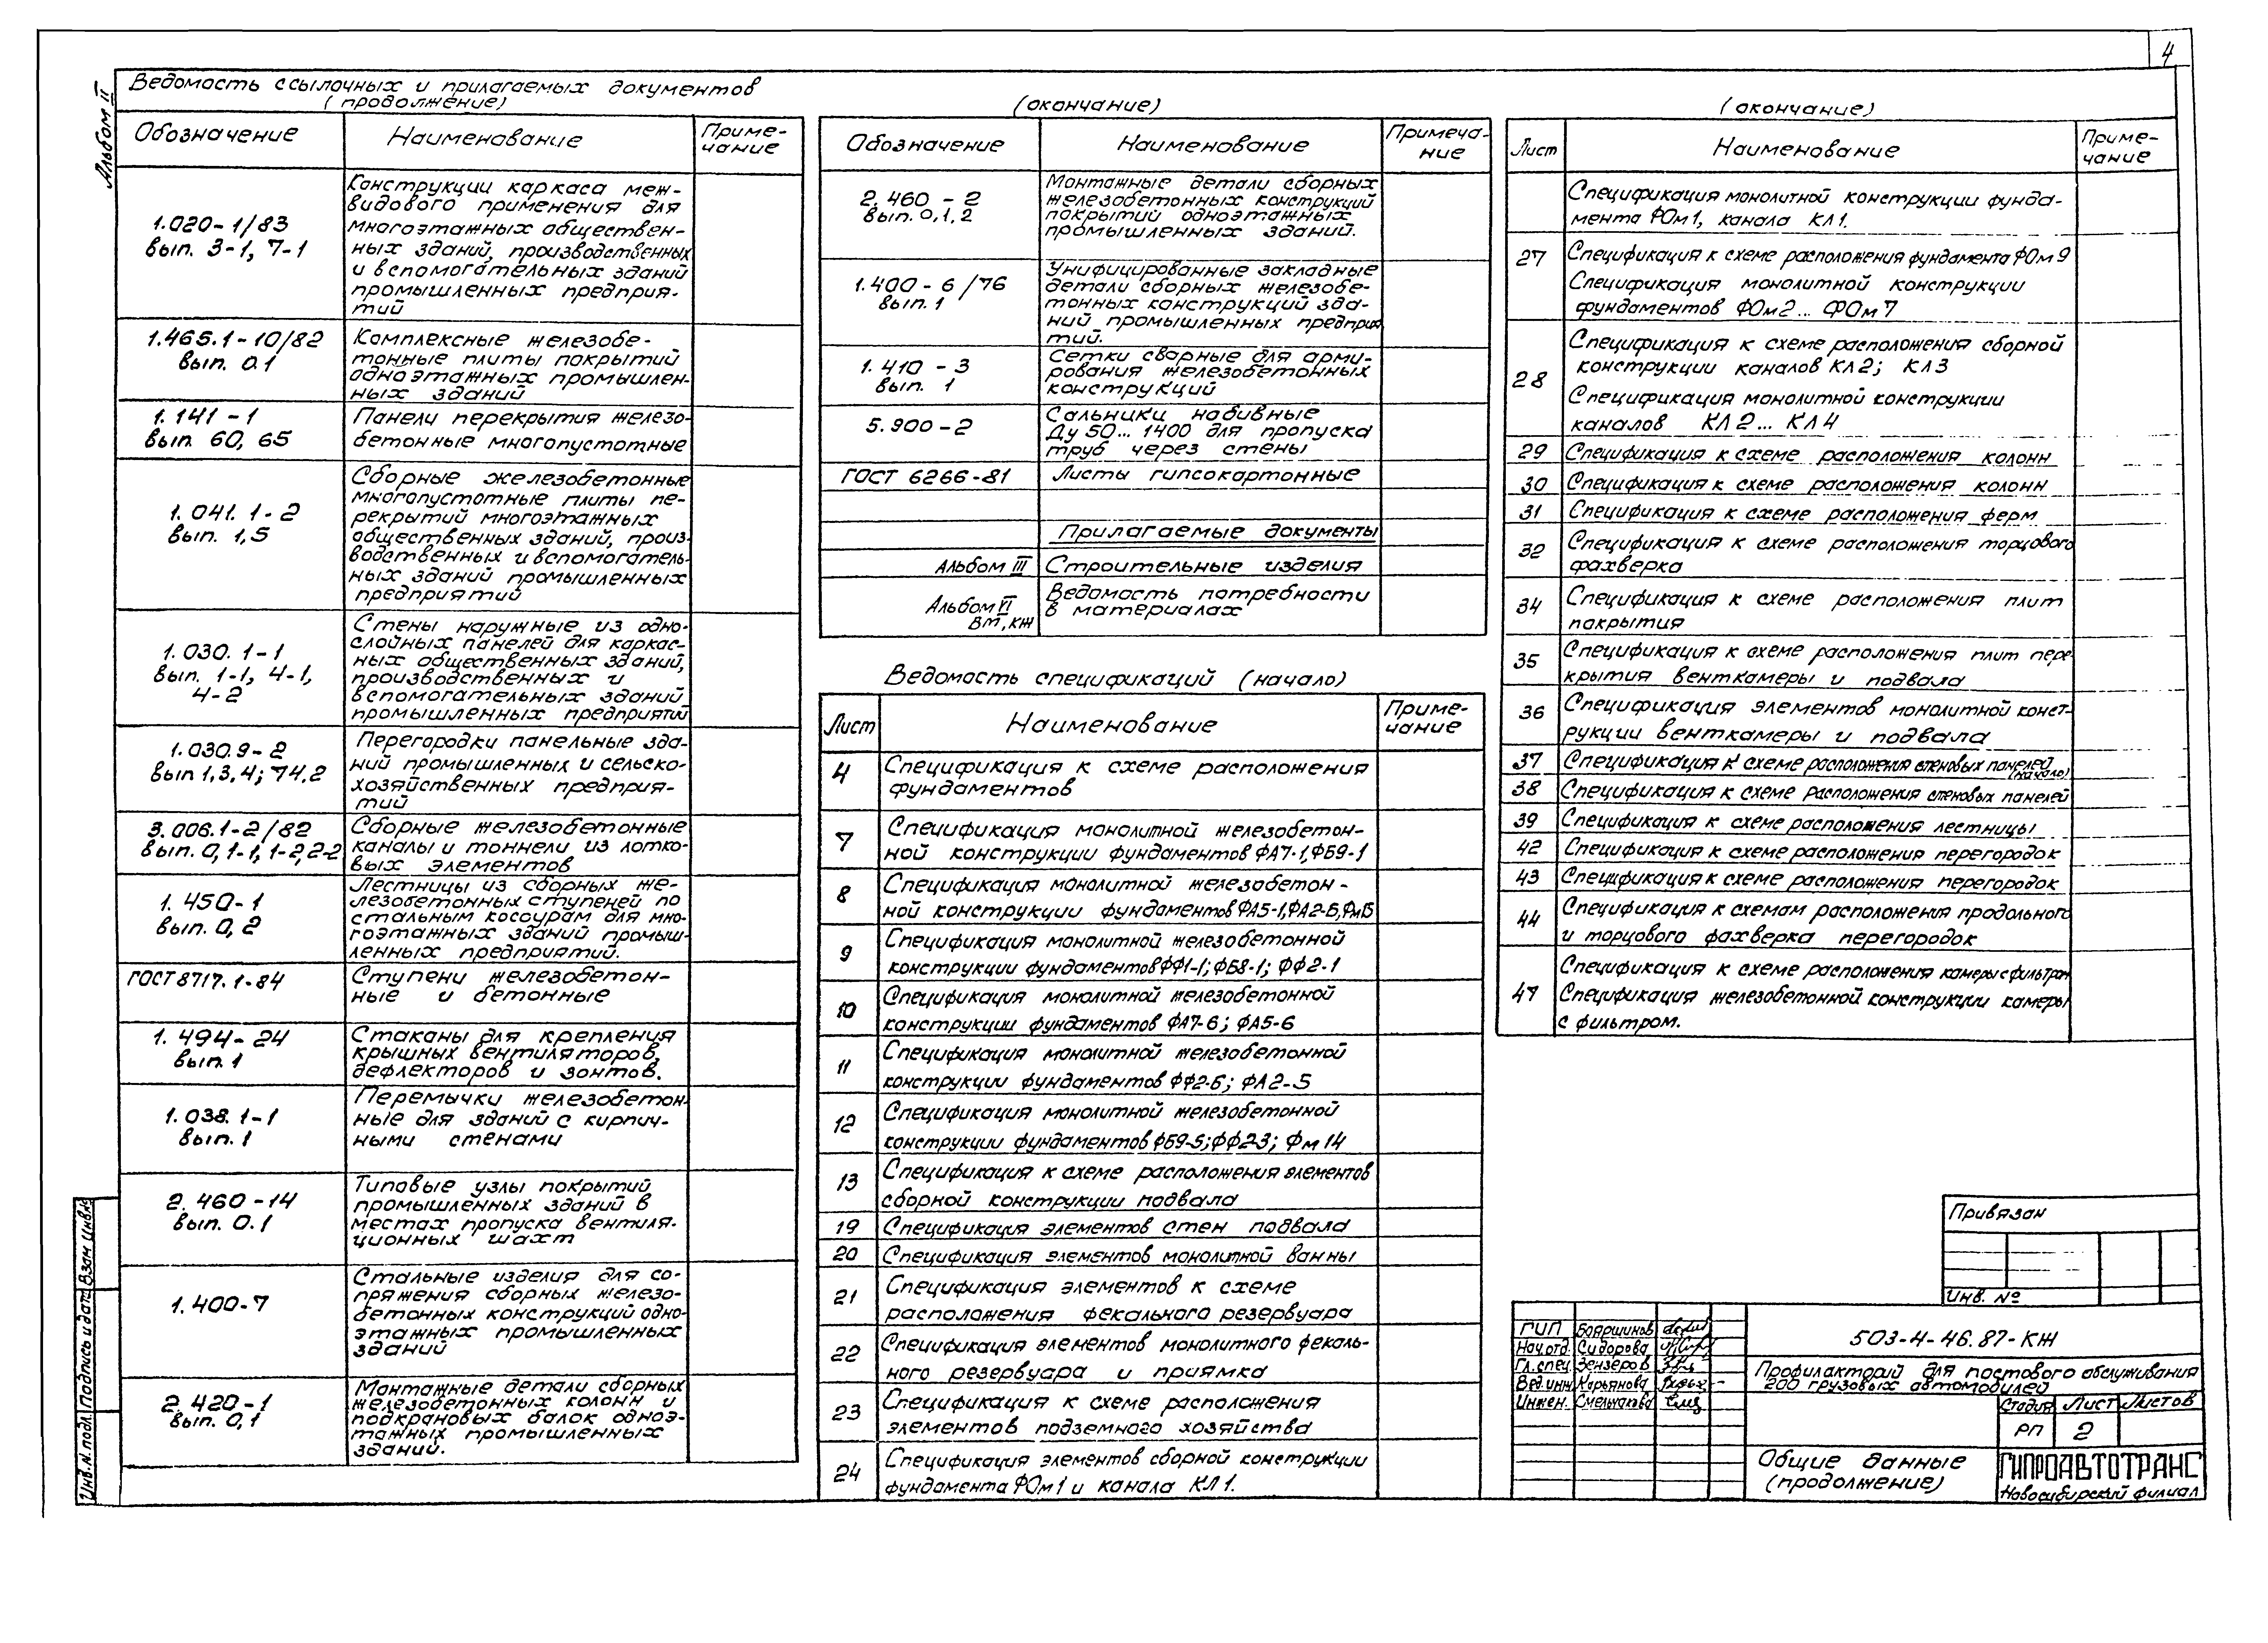 4
Альбом II
Ведомость ссылочных и прилагаемых документов
(продолжение)
Обозначение
Наименование
Приме-
чание
1.020-1/83
вып. 3-1, 7-1
Конструкции каркаса меж-
видового применения для
многоэтажных обществен-
ных зданий, производственных
и вспомогательных зданий
промышленных предприя-
тий
1.465.1-10/82
вып. 0.1
Комплексные железобе-
тонные плиты покрытий
одноэтажных промышлен-
ных зданий
1.141-1
вып. 60, 65
Панели перекрытия железо-
бетонные многопустотные
1.041.1-2
вып. 1,5
Сборные железобетонные
многопустотные плиты пе-
рекрытий многоэтажных
общественных зданий, произ-
водственных и вспомогатель-
ных зданий промышленных
предприятий
1.030.1-1
вып. 1-1, 4-1,
4-2
Стены наружные из одно-
слойных панелей для каркас-
ных общественных зданий,
производственных и
вспомогательных зданий
промышленных предприятий
1.030.9-2
вып 1,3,4; 74.2
Перегородки панельные зда-
ний промышленных и сельско-
хозяйственных предприя-
тий
3.006.1-2/82
вып. 0, 1-1, 1-2, 2-2
Сборные железобетонные
каналы и тоннели из лотко-
вых элементов
1.450-1
вып. 0, 2
Лестницы из сборных же-
лезобетонных ступеней по
стальным косоурам для мно-
гоэтажных зданий промыш-
ленных предприятий.
ГОСТ 8717.1-84
Ступени железобетон-
ные и бетонные
1.494-24
вып. 1
Стаканы для крепления
крышных вентиляторов,
дефлекторов и зонтов.
1.038.1-1
вып. 1
Перемычки железобетон-
ные для зданий с кирпич-
ными стенами
2.460-14
вып. 0.1
Типовые узлы покрытий
промышленных зданий в
местах пропуска вентиля-
ционных шахт
1.400-7
Стальные изделия для со-
пряжения сборных железо-
бетонных конструкций одно-
этажных промышленных
зданий
2.420-1
вып. 0,1
Монтажные детали сборных
железобетонных колонн и
подкрановых балок одноэ-
тажных промышленных
зданий.
(окончание)
Обозначение
Наименование
Примеча-
ние
2.460-2
вып. 0,1,2
Монтажные детали сборных
железобетонных конструкций
покрытий одноэтажных
промышленных зданий.
1.400-6/76
вып. 1
Унифицированные закладные
детали сборных железобе-
тонных конструкций зда-
ний промышленных предприя
тий.
1.410-3
вып. 1
Сетки сварные для арми-
рования железобетонных
конструкций
5.900-2
Сальники набивные
Ду 50... 1400 для пропуска
труб через стены
ГОСТ 6266-81
Листы гипсокартонные
Прилагаемые документы
Альбом III
Строительные изделия
Альбом VI
Вм, кж
Ведомость потребности
в материалах
Ведомость спецификаций (начало)
Лист
Наименование
Приме-
чание
4
Спецификация к схеме расположения
фундаментов
7
Спецификация монолитной железобетон-
ной конструкции фундаментов ФА7-1, ФБ9-1
8
Спецификация монолитной железобетон-
ной конструкции фундаментов ФА5-1, ФА2-Б, Фм15
9
Спецификация монолитной железобетонной
конструкции фундаментов ФФ1-1; ФБ8-1; ФФ2-1
10
Спецификация монолитной железобетонной
конструкции фундаментов ФА7-6; ФА5-6
11
Спецификация монолитной железобетонной
конструкции фундаментов ФФ2-Б; ФА2-5
12
Спецификация монолитной железобетонной
конструкции фундаментов ФБ9-5; ФФ2-3; Фм14
13
Спецификация к схеме расположения элементов
сборной конструкции подвала
19
Спецификация элементов стен подвала
20
Спецификация элементов монолитной ванны
21
Спецификация элементов к схеме
расположения фекального резервуара
22
Спецификация элементов монолитного фекаль-
ного резервуара и приямка
23
Спецификация к схеме расположения
элементов подземного хозяйства
24
Спецификация элементов сборной конструкции
фундамента ФОм1 и канала КЛ1.
(окончание)
Лист
Наименование
Приме-
чание
Спецификация монолитной конструкции фунда-
мента ФОм1, канала КЛ1.
27
Спецификация к схеме расположения фундамента ФОм9
Спецификация монолитной конструкции
фундаментов ФОм2... ФОм7
28
Спецификация к схеме расположения сборной
конструкции каналов КЛ2; КЛ3
Спецификация монолитной конструкции
каналов КЛ2... КЛ4
29
Спецификация к схеме расположения колонн
30
Спецификация к схеме расположения колонн
31
Спецификация к схеме расположения ферм
32
Спецификация к схеме расположения торцового
фахверка
34
Спецификация к схеме расположения плит
покрытия
35
Спецификация к схеме расположения плит пере-
крытия венткамеры и подвала
36
Спецификация элементов монолитной конст-
рукции венткамеры и подвала
37
Спецификация к схеме расположения стеновых панелей
(начало)
38
Спецификация к схеме расположения стеновых панелей
39
Спецификация к схеме расположения лестницы
42
Спецификация к схеме расположения перегородок
43
Спецификация к схеме расположения перегородок
44
Спецификация к схемам расположения продольного
и торцового фахверка перегородок
47
Спецификация к схеме расположения камеры с фильтром
Спецификация железобетонной конструкции камеры
с фильтром.
Привязан
Инв. №
ГИП Бояршинов
Нач.отд. Сидорова
Гл.спец. Зензеров
Вед.инж Карьянова
Инжен.
503-4-46.87-КЖ
Профилакторий для постового обслуживания
200 грузовых автомобилей
Стадия Лист Листов
РП 2
Общие данные
(продолжение)
ГИПРОАВТОТРАНС
Новосибирский филиал
Инв.N.подл. Подпись и дата Взам.инв.N